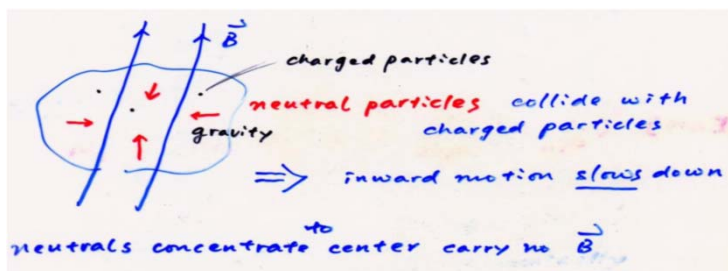 B
charged particles
neutral particles collide with
gravity charged particles
⟹ inward motion slows down
neutrals concentrate to center carry no B